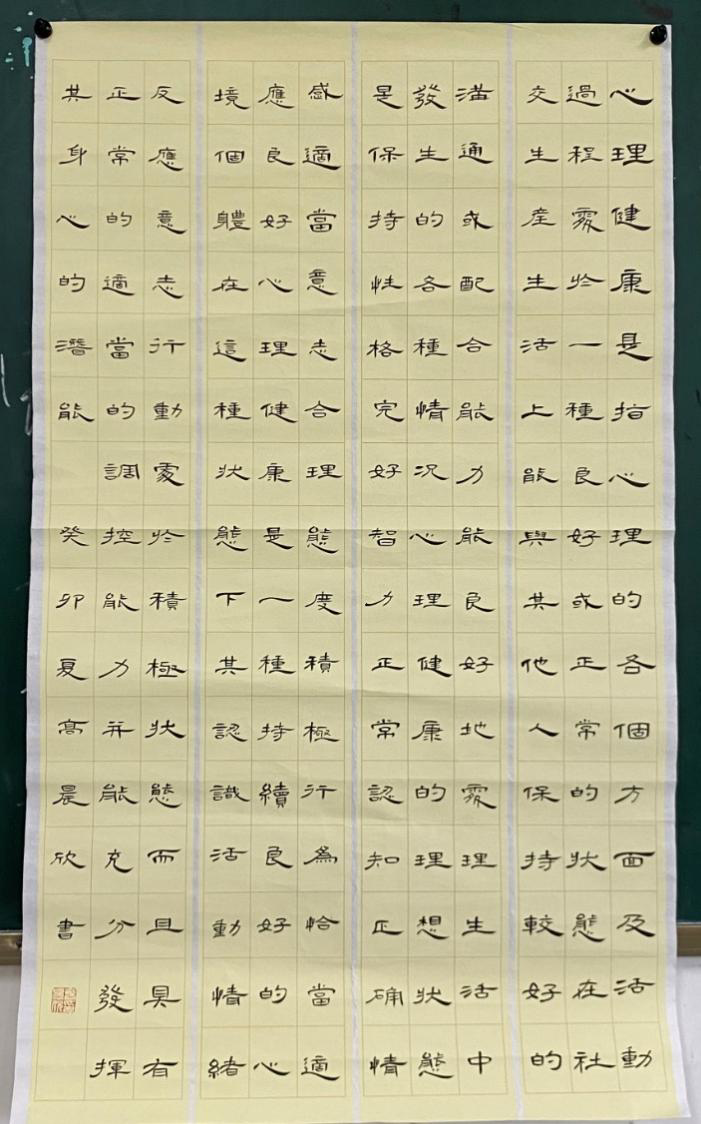 心理健康是指心理的各個方面及活動
過程處於一種良好或正常的狀態在社
交生產生活上能與其他人保持較好的
溝通或配合能力能良好地處理生活中
發生的各種情況心理健康的理想狀態
是保持性格完好智力正常認知正确情
感適當意志合理態度積極行為恰當適
應良好心理健康是一種持續良好的心
境個體在這種狀態下其認識活動情緒
反應意志行動處於積極狀態而且具有
正常的適當的調控能力并能充分發揮
其身心的潛能 癸卯夏高晨欣書